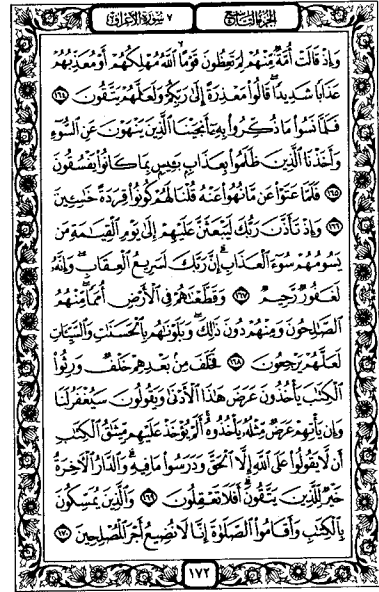 الجزء التاسع ٧ سورة الأعراف
وَإِذْ قَالَتْ أُمَّةٌ مِّنْهُمْ لِمَ تَعِظُونَ قَوْمًا اللَّهُ مُهْلِكُهُمْ أَوْ مُعَذِّبُهُمْ
عَذَابًا شَدِيدًا قَالُوا مَعْذِرَةً إِلَىٰ رَبِّكُمْ وَلَعَلَّهُمْ يَتَّقُونَ ١٦٤
فَلَمَّا نَسُوا مَا ذُكِّرُوا بِهِ أَنجَيْنَا الَّذِينَ يَنْهَوْنَ عَنِ السُّوءِ
وَأَخَذْنَا الَّذِينَ ظَلَمُوا بِعَذَابٍ بَئِيسٍ بِمَا كَانُوا يَفْسُقُونَ
١٦٥ فَلَمَّا عَتَوْا عَن مَّا نُهُوا عَنْهُ قُلْنَا لَهُمْ كُونُوا قِرَدَةً خَاسِئِينَ
١٦٦ وَإِذْ تَأَذَّنَ رَبُّكَ لَيَبْعَثَنَّ عَلَيْهِمْ إِلَىٰ يَوْمِ الْقِيَامَةِ مَن
يَسُومُهُمْ سُوءَ الْعَذَابِ إِنَّ رَبَّكَ لَسَرِيعُ الْعِقَابِ وَإِنَّهُ
لَغَفُورٌ رَّحِيمٌ ١٦٧ وَقَطَّعْنَاهُمْ فِي الْأَرْضِ أُمَمًا مِّنْهُمُ
الصَّالِحُونَ وَمِنْهُمْ دُونَ ذَٰلِكَ وَبَلَوْنَاهُم بِالْحَسَنَاتِ وَالسَّيِّئَاتِ
لَعَلَّهُمْ يَرْجِعُونَ ١٦٨ فَخَلَفَ مِن بَعْدِهِمْ خَلْفٌ وَرِثُوا
الْكِتَابَ يَأْخُذُونَ عَرَضَ هَٰذَا الْأَدْنَىٰ وَيَقُولُونَ سَيُغْفَرُ لَنَا
وَإِن يَأْتِهِمْ عَرَضٌ مِّثْلُهُ يَأْخُذُوهُ أَلَمْ يُؤْخَذْ عَلَيْهِم مِّيثَاقُ الْكِتَابِ
أَن لَّا يَقُولُوا عَلَى اللَّهِ إِلَّا الْحَقَّ وَدَرَسُوا مَا فِيهِ وَالدَّارُ الْآخِرَةُ
خَيْرٌ لِّلَّذِينَ يَتَّقُونَ أَفَلَا تَعْقِلُونَ ١٦٩ وَالَّذِينَ يُمَسِّكُونَ
بِالْكِتَابِ وَأَقَامُوا الصَّلَاةَ إِنَّا لَا نُضِيعُ أَجْرَ الْمُصْلِحِينَ ١٧٠
١٧٢